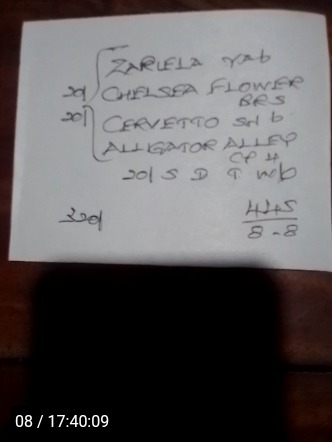 ZARIELA Yab
20/ CHELSEA FLOWER
BRS
20/ CERVETTO Sth b
ALLIGATOR ALLEY
CP 4
20/ S D T w/b
445
8-8
08 / 17:40:09